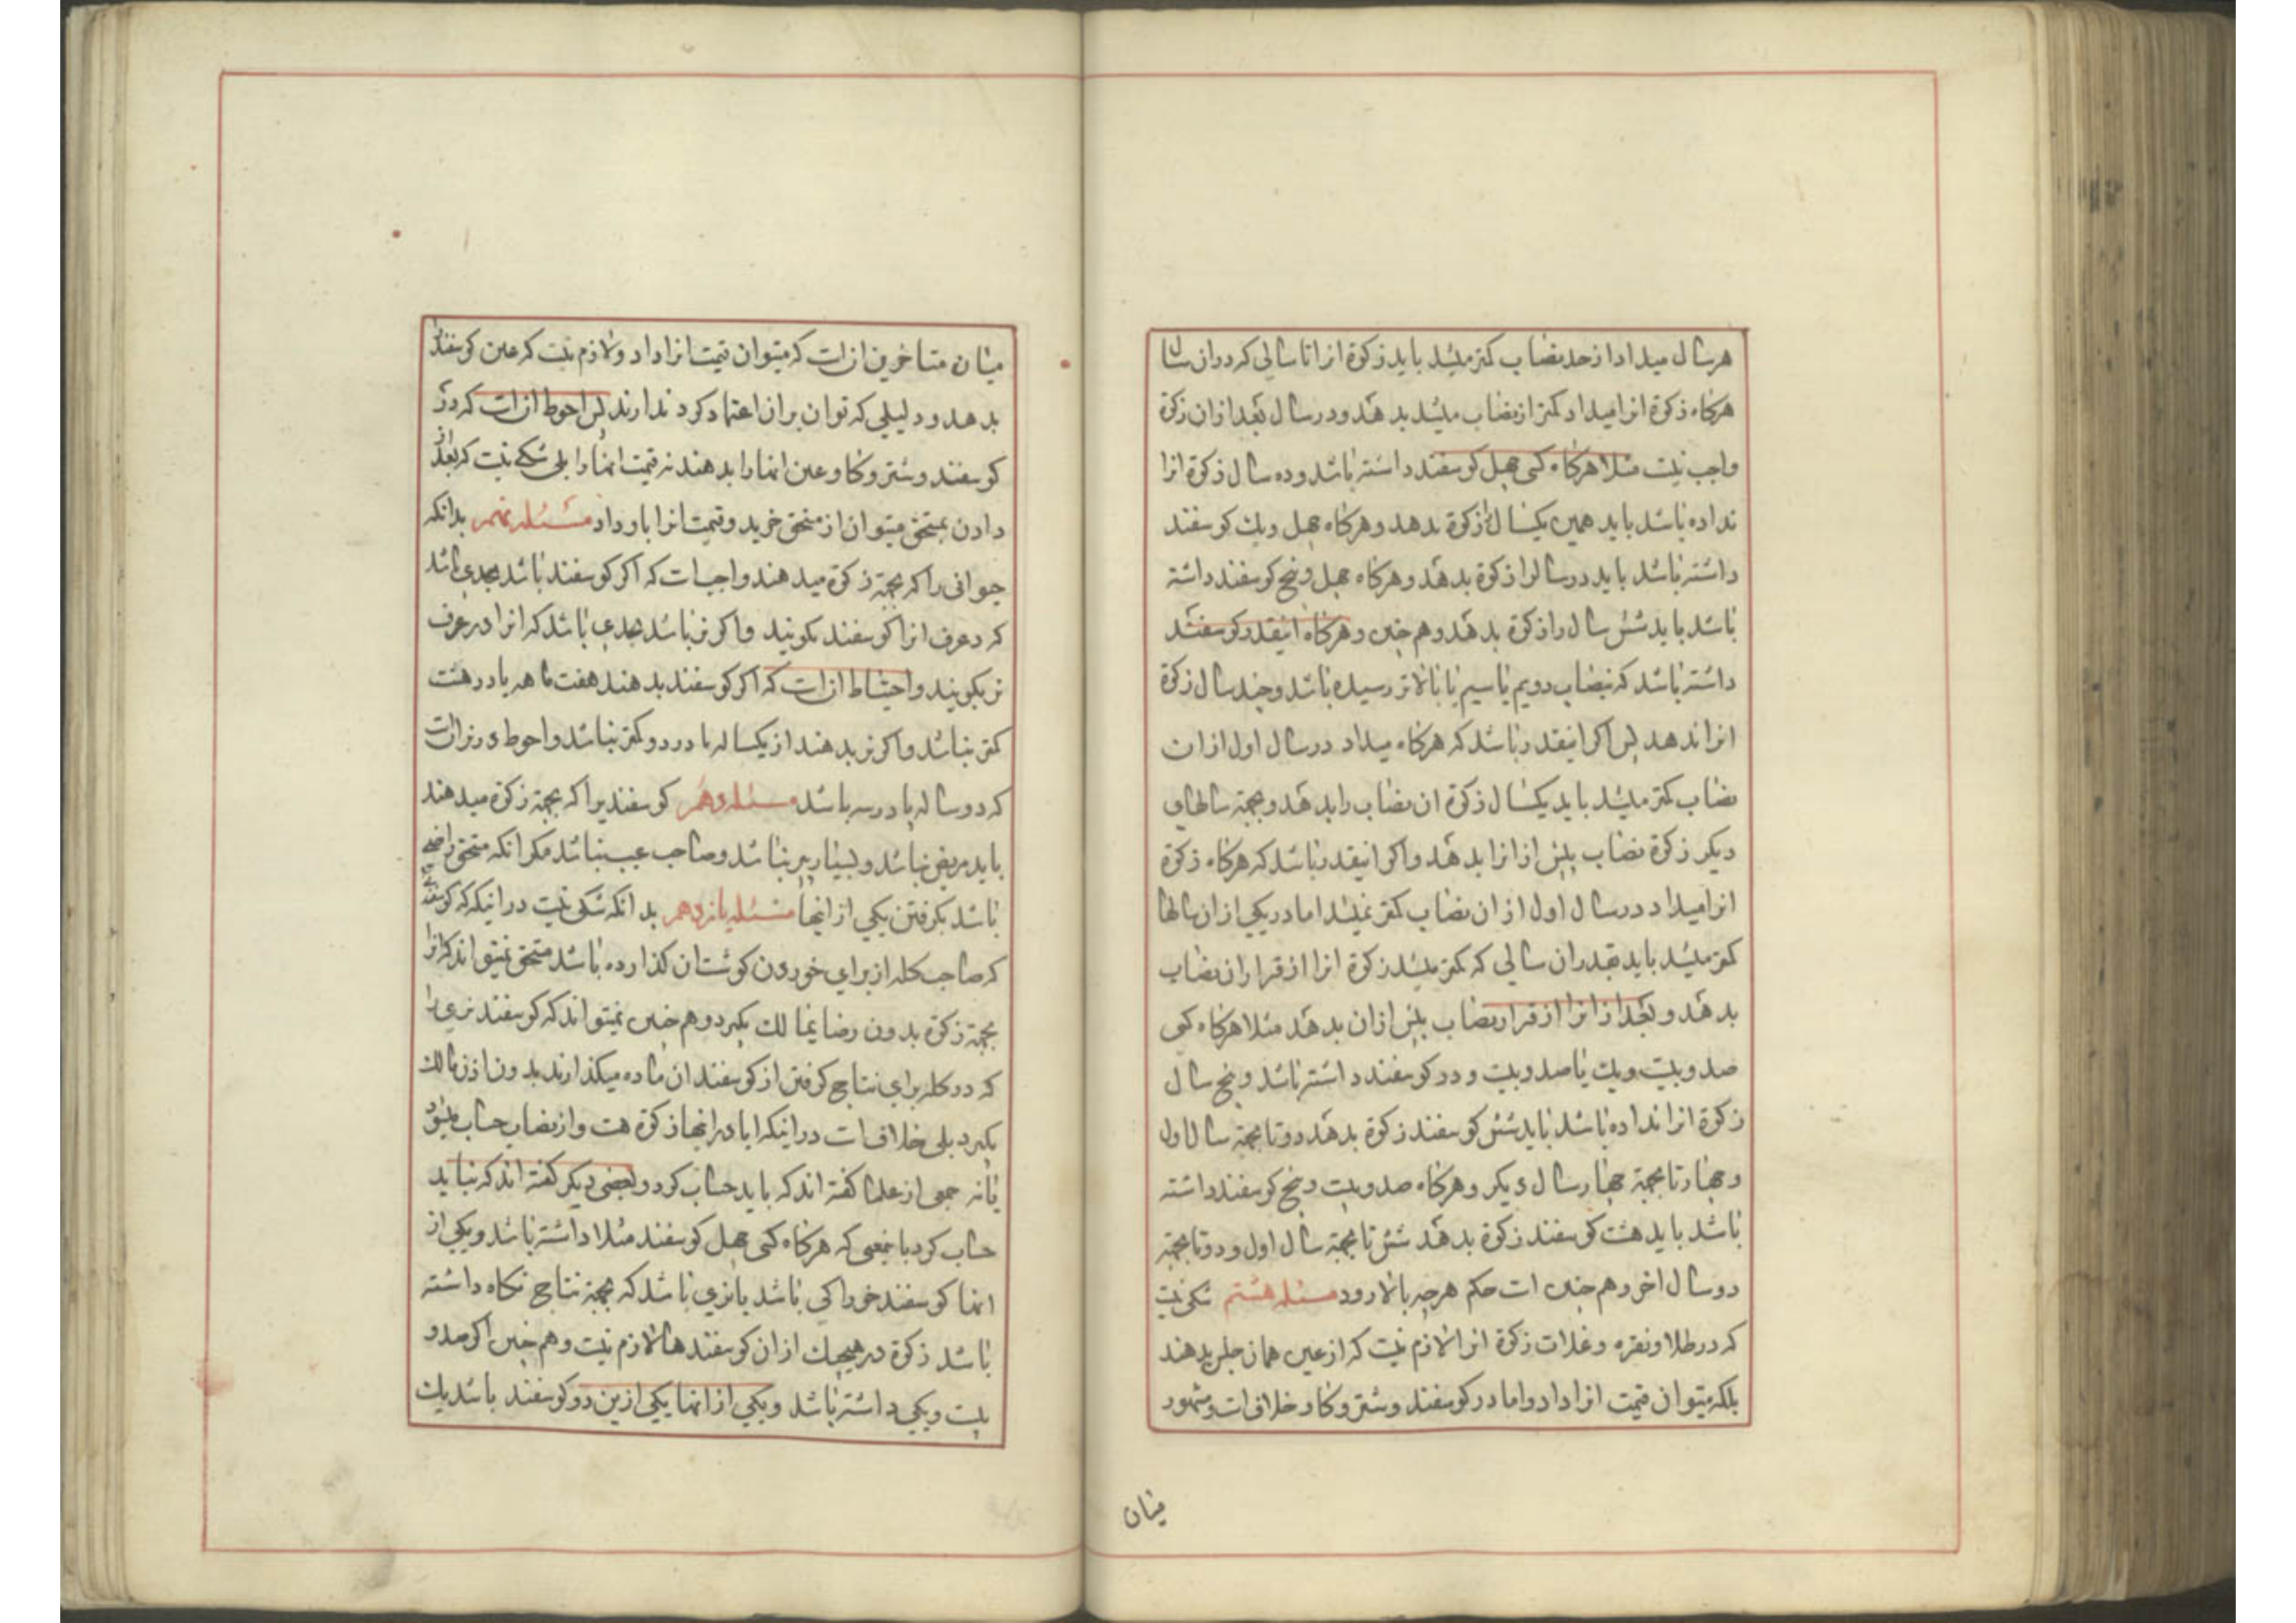 هر سال میداد از حد نصاب کمتر میشد باید زکوة انرا تا سالی که در ان سال
هرکاه زکوة انرا میداد کمتر از نصاب میشد بدهد و در سال بعد از ان زکوة
واجب نیست مثلا هرکاه کسی چهل کوسفند داشته باشد و ده سال زکوة انرا
نداده باشد باید همین یکسال را زکوة بدهد و هرکاه چهل و یک کوسفند
داشته باشد باید دو سال را زکوة بدهد و هرکاه چهل و پنج کوسفند داشته
باشد باید شش سال را زکوة بدهد و هم چنین و هرکاه اینقدر کوسفند
داشته باشد که بنصاب دویم یا سیم یا بالاتر رسیده باشد و چند سال زکوة
انرا ندهد پس اکر اینقدر باشد که هرکاه میداد در سال اول از ان
نصاب کمتر میشد باید یکسال زکوة ان نصاب را بدهد و بجهة سالهای
دیکر زکوة نصاب پیش از انرا بدهد و اکر اینقدر باشد که هرکاه زکوة
انرا میداد در سال اول از ان نصاب کمتر نمیشد اما در یکی از ان سالها
کمتر میشد باید بقدر ان سالی که کمتر میشد زکوة انرا از قرار ان نصاب
بدهد و بعد از انرا از قرار نصاب پیش از ان بدهد مثلا هرکاه کسی
صد و بیست و یک یا صد و بیست و دو کوسفند داشته باشد و پنج سال
زکوة انرا نداده باشد باید شش کوسفند زکوة بدهد دو تا بجهة سال اول
و چهار تا بجهة چهار سال دیکر و هرکاه صد و بیست و پنج کوسفند داشته
باشد باید هشت کوسفند زکوة بدهد شش تا بجهة سال اول و دو تا بجهة
دو سال اخر و هم چنین است حکم هرچه بالا رود مسئله هشتم شکی نیست
که در طلا و نقره و غلات زکوة انرا لازم نیست که از عین همان جنس بدهند
بلکه میتوان قیمت انرا داد و اما در کوسفند و شتر و کاو خلافست و مشهور
میان
میان متاخرین انست که میتوان قیمت انرا داد و لازم نیست که عین کوسفند را
بدهد و دلیلی که توان بر ان اعتماد کرد ندارند پس احوط انست که در
کوسفند و شتر و کاو عین انها را بدهند نه قیمت انها را بلی شکی نیست که بعد از
دادن بمستحق میتوان از مستحق خرید و قیمت انرا باو داد مسئله نهم بدانکه
حیوانی را که بجهة زکوة میدهند واجبست که اکر کوسفند باشد بحدی باشد
که در عرف انرا کوسفند بکویند و اکر بز باشد بحدی باشد که انرا در عرف
بز بکویند و احتیاط انست که اکر کوسفند بدهند هفت ماهه پا در هشت
کمتر نباشد و اکر بز بدهند از یکساله پا در دو کمتر نباشد و احوط در بز انست
که دو ساله پا در سه باشد مسئله دهم کوسفندیرا که بجهة زکوة میدهند
باید مریض نباشد و بسیار پیر نباشد و صاحب عیب نباشد مکر انکه مستحق راضی
باشد بکرفتن یکی از اینها مسئله یازدهم بدانکه شکی نیست در اینکه کوسفندی
که صاحب کله از برای خوردن کوشت ان کذارده باشد مستحق نمیتواند که انرا
بجهة زکوة بدون رضای مالک بکیرد و هم چنین نمیتواند که کوسفند نری را
که در کله برای نتاج کرفتن از کوسفندان ماده میکذارند بدون اذن مالک
بکیرد بلی خلافست در اینکه ایا در اینها زکوة هست و از نصاب حساب میشود
یا نه جمعی از علما کفته اند که باید حساب کرد و بعضی دیکر کفته اند که نباید
حساب کرد باینمعنی که هرکاه کسی چهل کوسفند مثلا داشته باشد و یکی از
انها کوسفند خوراکی باشد یا نری باشد که بجهة نتاج نکاه داشته
باشد زکوة در هیچیک از ان کوسفندها لازم نیست و هم چنین اکر صد و
بیست و یکی داشته باشد و یکی از انها یکی ازین دو کوسفند باشد یک